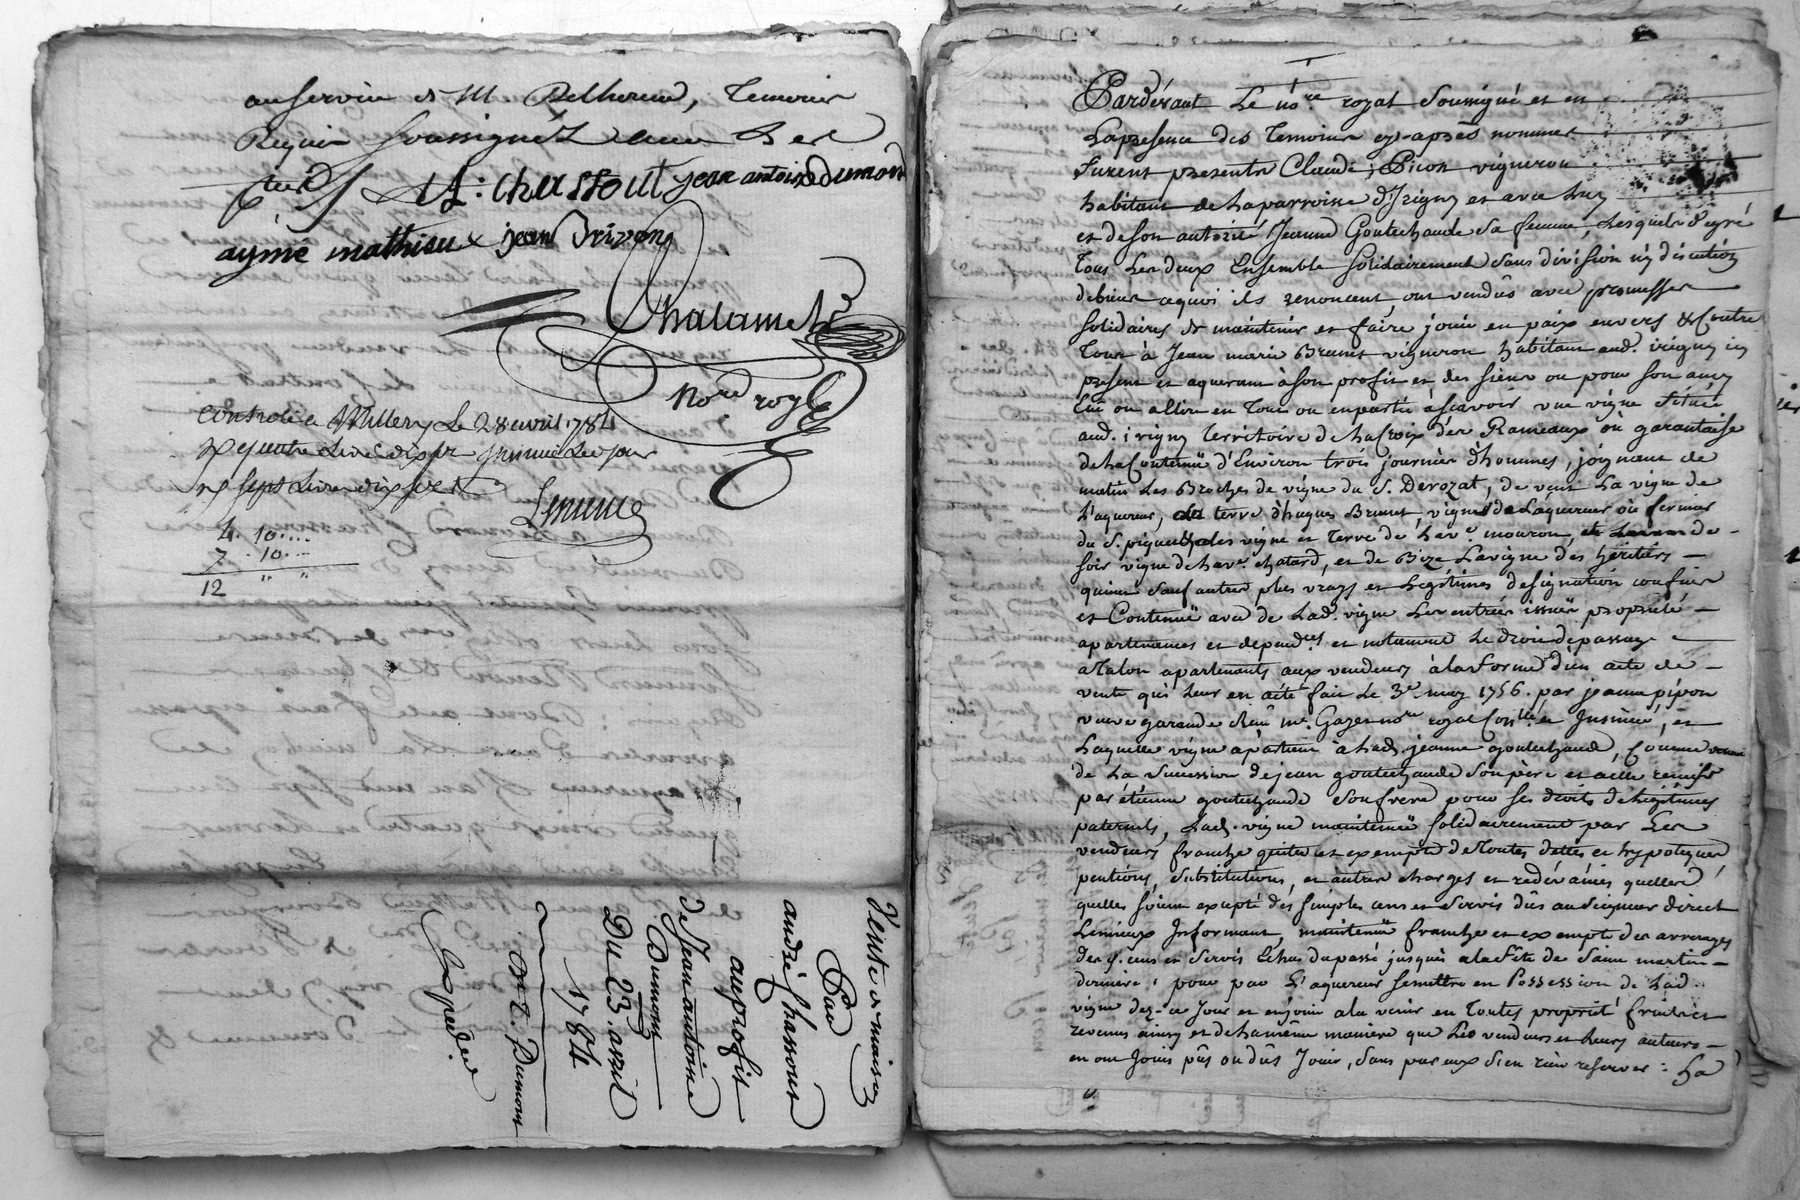 au servin
Requis soussignez avec Les
A: Chassout jean antoine dumond
aymé mathieu jean Brivon
Chalamel
No.re roy.l
Controlé a Millery Le 28 avril 1784
quatre Livre dix s.
sept Livres dix
4. 10....
7. 10...
12 " "
Vente de maison
Par
andré Chassout
au profit
de Jean antoine
Dumont
Du 23. avril
1784
Dumont
Expédiée
Pardevant Le no.re royal soussigné et en
La presence des Temoins cy-après nommés
Furent presents Claude Picon vigneron
habitant de La parroisse d'Irigny et avec luy
et de son autorité Jeanne Goutechaude sa femme, Lesquels de gré
Tous Les deux Ensemble solidairement sans division ny discution
de biens aquoi ils renoncent, ont vendus avec promesse
solidaires de maintenir et faire jouir en paix envers & Contre
Tous à Jean marie Brunet vigneron habitant aud. irigny icy
present et aquerant à son profit et des siens ou pour son amy
Elu ou a Elire en Tout ou en partie àscavoir une vigne située
aud. irigny Territoire de La Croix des Rameaux ou garantaise
de La Contenüe d'Environ trois journées d'hommes, joignant de
matin Les Broches de vigne du S. Derozat, de vent La vigne de
L'aquereur, terre d'hugues Brunet, vigne de L'aquereur où fermier
du S. vigne et Terre de La v.e mouron, de
soir vigne de La v.e chatard, et de Bize La vigne des héritiers
quinin sauf autres plus vrays et Legitimes designation confins
et Contenüe avec de Lad. vigne Les entrées issües propriété
apartenances et depend.ces et notament Le droit de passage
a Talon apartenants aux vendeurs à la forme d'un acte de
vente qui Leur en a été fait Le 3.e may 1756. par jeanne pipon
veuve garande Reçu m.e Gazer no.re royal Con.llé et Insinué, et
Laquelle vigne apartient à Lad. jeanne goutechaude, Comme venue
de La succession de jean goutechaude son père et a elle remise
par étienne goutechaude son frere pour ses droits de Légitimes
paternels, Lad. vigne maintenüe solidairement par Les
vendeurs franche quitte et exempte de Toutes dettes et hypoteques
pentions, substitutions, et autres charges et redévances quelles
quelles soient excepté des simples cens et servis dûs au seigneur direct
maintenüe franche et exempte des arrerages
desq. cens et servis Echus du passé jusques a la fête de Saint martin
derniere; pour par L'aquereur se mettre en Possession de Lad.
vigne dez-ce Jour et en jouir a la venir en Toutes proprieté fruits et
revenus ainsy et de La même maniere que Les vendeurs et Leurs auteurs
en ont Jouis pûs ou dûs Jouir, sans par eux s'en rien reserver: La